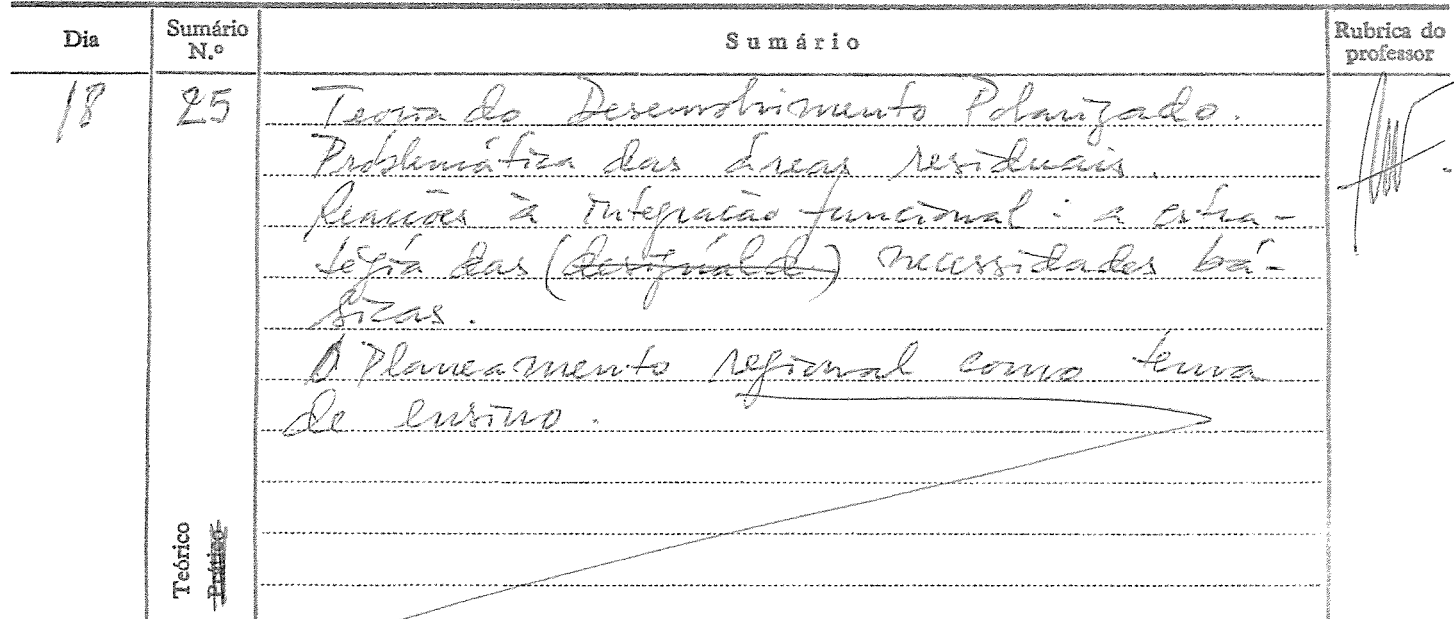 Dia
Sumário N.º
Sumário
Rubrica do professor
18
25
Teoria do Desenvolvimento Polarizado.
Problemática das áreas residuais.
Reacções à integração funcional: a estra-
tégia das (desigualda) necessidades bá-
sicas.
O Planeamento regional como tema
de ensino.
Teórico
Prático